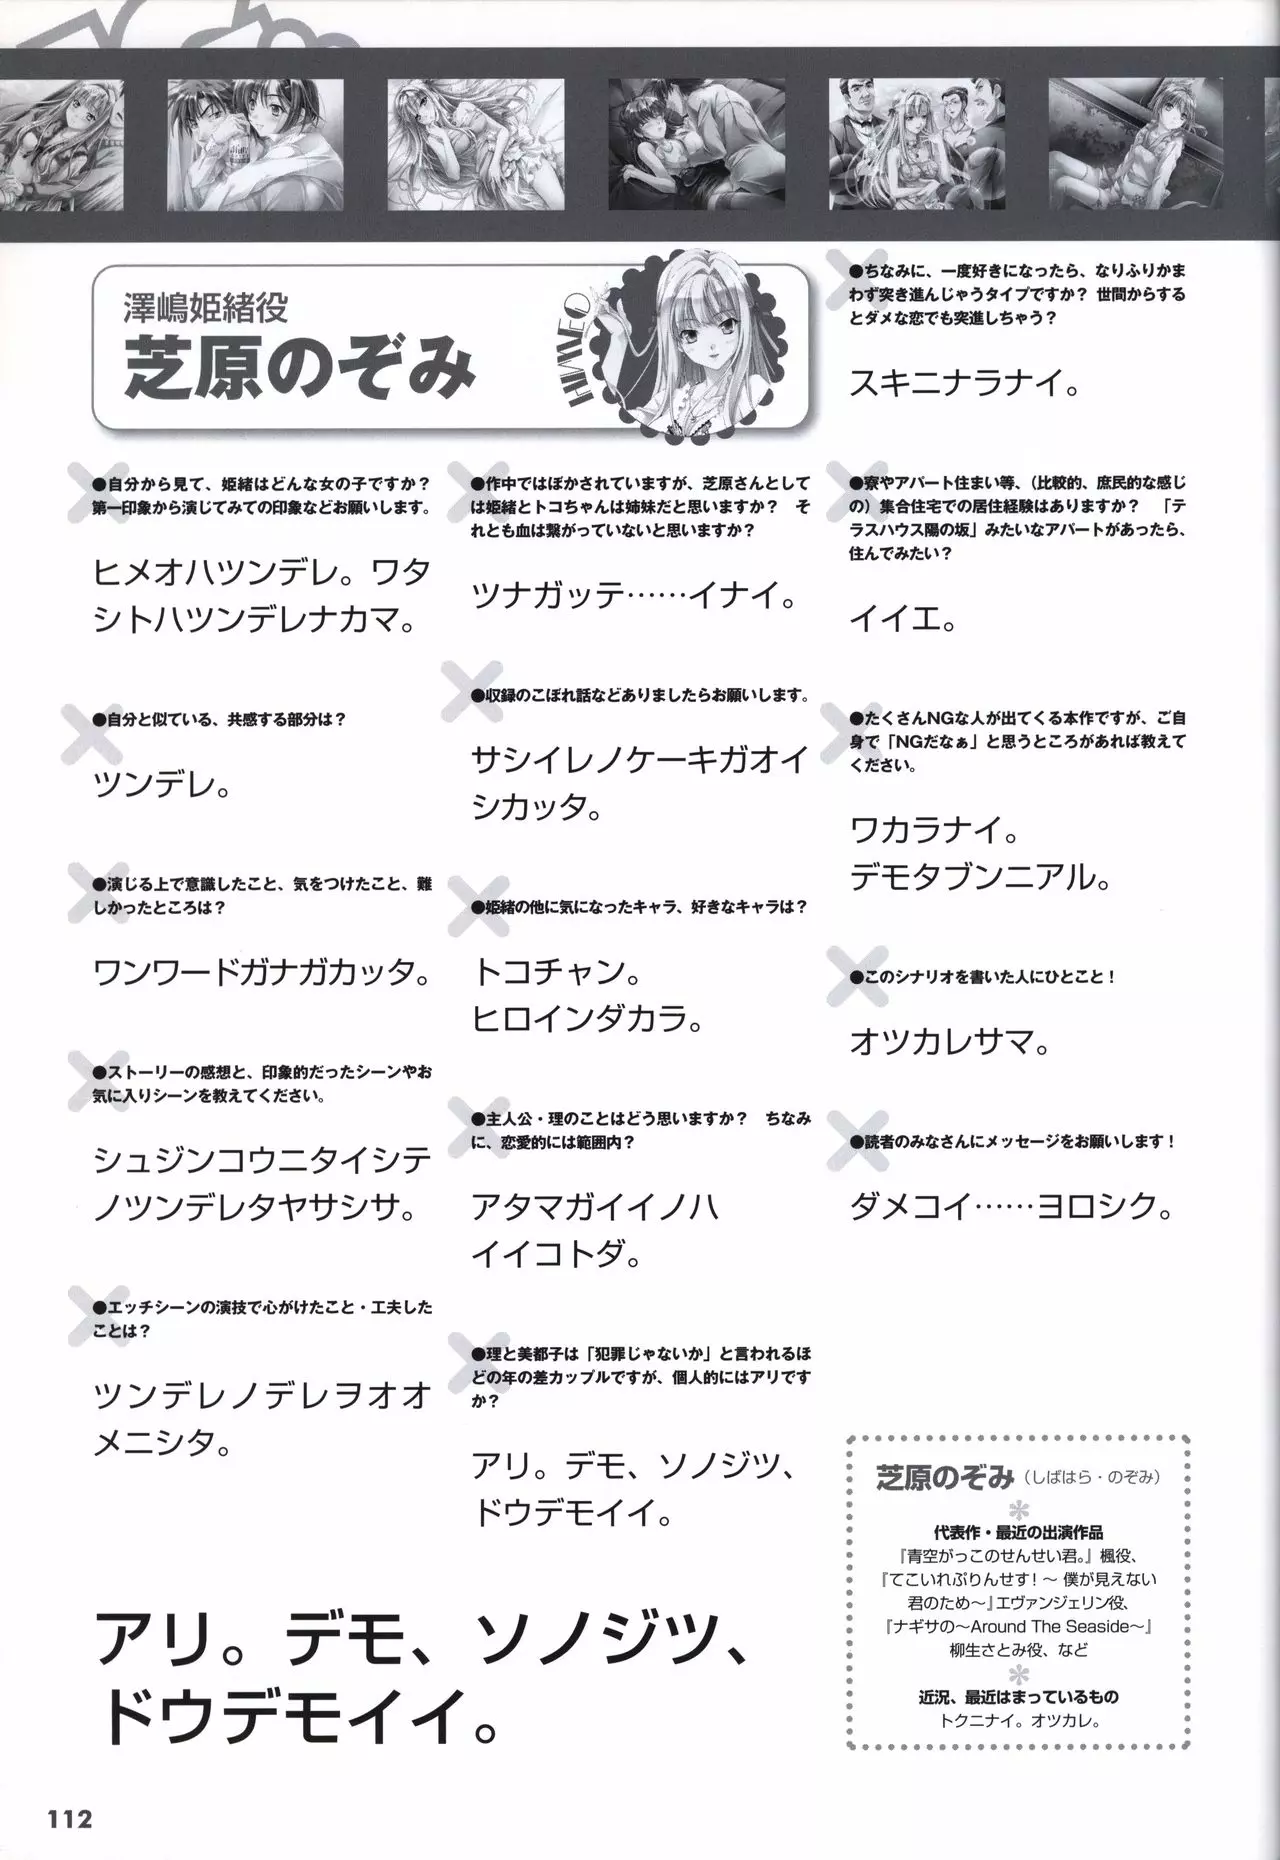 澤嶋姫緒役
芝原のぞみ
HIMEO
●自分から見て、姫緒はどんな女の子ですか？
第一印象から演じてみての印象などお願いします。
ヒメオハツンデレ。ワタ
シトハツンデレナカマ。
●自分と似ている、共感する部分は？
ツンデレ。
●演じる上で意識したこと、気をつけたこと、難
しかったところは？
ワンワードガナガカッタ。
●ストーリーの感想と、印象的だったシーンやお
気に入りシーンを教えてください。
シュジンコウニタイシテ
ノツンデレタヤサシサ。
●エッチシーンの演技で心がけたこと・工夫した
ことは？
ツンデレノデレヲオオ
メニシタ。
●作中ではぼかされていますが、芝原さんとして
は姫緒とトコちゃんは姉妹だと思いますか？　そ
れとも血は繋がっていないと思いますか？
ツナガッテ……イナイ。
●収録のこぼれ話などありましたらお願いします。
サシイレノケーキガオイ
シカッタ。
●姫緒の他に気になったキャラ、好きなキャラは？
トコチャン。
ヒロインダカラ。
●主人公・理のことはどう思いますか？　ちなみ
に、恋愛的には範囲内？
アタマガイイノハ
イイコトダ。
●理と美都子は「犯罪じゃないか」と言われるほ
どの年の差カップルですが、個人的にはアリです
か？
アリ。デモ、ソノジツ、
ドウデモイイ。
●ちなみに、一度好きになったら、なりふりかま
わず突き進んじゃうタイプですか？ 世間からする
とダメな恋でも突進しちゃう？
スキニナラナイ。
●寮やアパート住まい等、（比較的、庶民的な感じ
の）集合住宅での居住経験はありますか？　「テ
ラスハウス陽の坂」みたいなアパートがあったら、
住んでみたい？
イイエ。
●たくさんNGな人が出てくる本作ですが、ご自
身で「NGだなぁ」と思うところがあれば教えて
ください。
ワカラナイ。
デモタブンニアル。
●このシナリオを書いた人にひとこと！
オツカレサマ。
●読者のみなさんにメッセージをお願いします！
ダメコイ……ヨロシク。
アリ。デモ、ソノジツ、
ドウデモイイ。
芝原のぞみ（しばはら・のぞみ）
代表作・最近の出演作品
『青空がっこのせんせい君。』楓役、
『てこいれぷりんせす！〜 僕が見えない
君のため〜』エヴァンジェリン役、
『ナギサの〜Around The Seaside〜』
柳生さとみ役、など
近況、最近はまっているもの
トクニナイ。オツカレ。
112